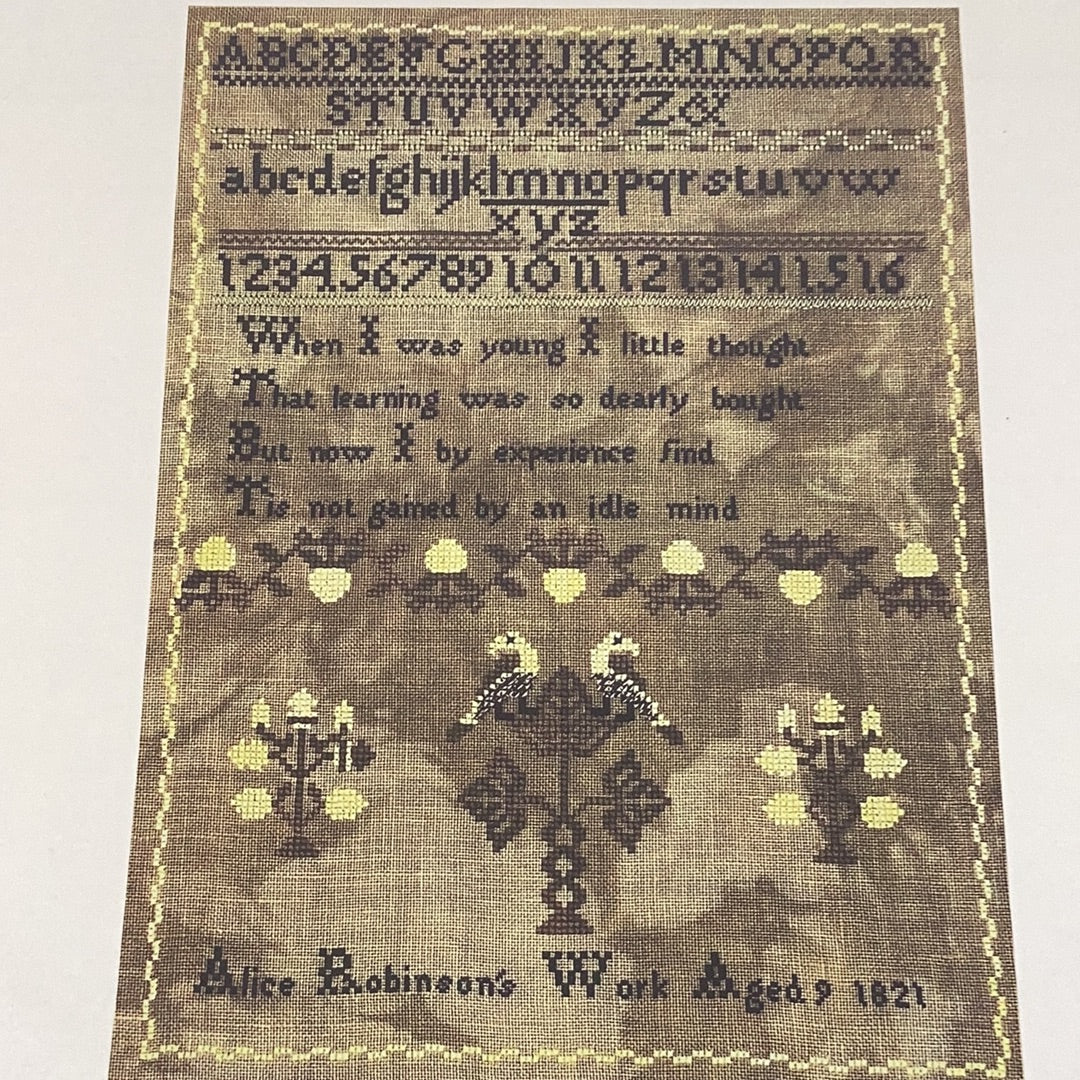 ABCDEFGHIJKLMNOPQR
STUVWXYZ&
abcdefghijklmnopqrstuvw
xyz
12345678910111213141516
When I was young I little thought
That learning was so dearly bought
But now I by experience find
Tis not gained by an idle mind
Alice Robinson's Work Aged 9 1821